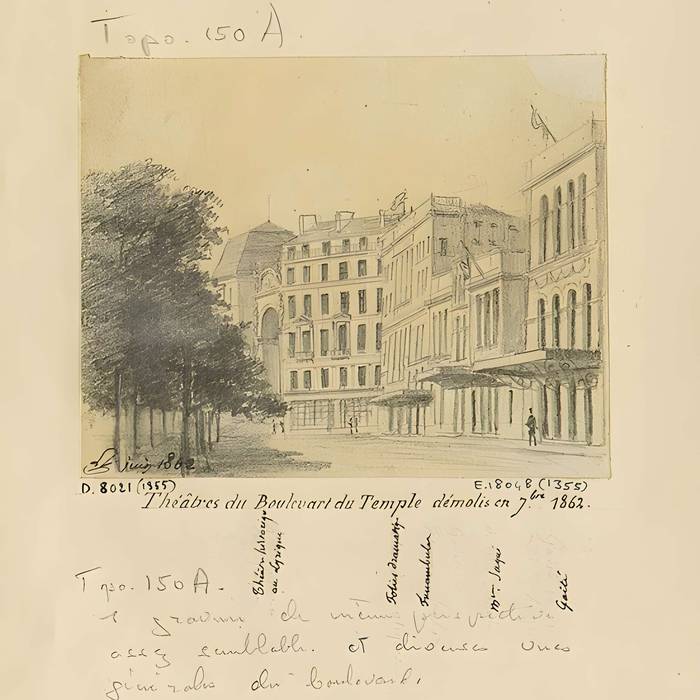 Topo. 150 A.
Juin 1862
D. 8021 (1355)
E. 18048 (1355)
Théâtres du Boulevart du Temple démolis en 7.bre 1862.
Théâtre historique
ou Lyrique
Folies dramatiq.
Funambules
Mme Saqui
Gaîté
Topo. 150 A.
gravure de même perspective
assez semblable. et diverses vues
générales du boulevard.